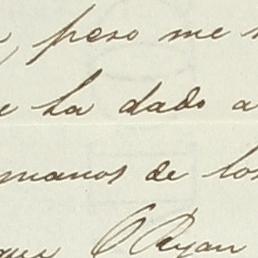 , pero me
e ha dado a
manos de los
que O'Ryan